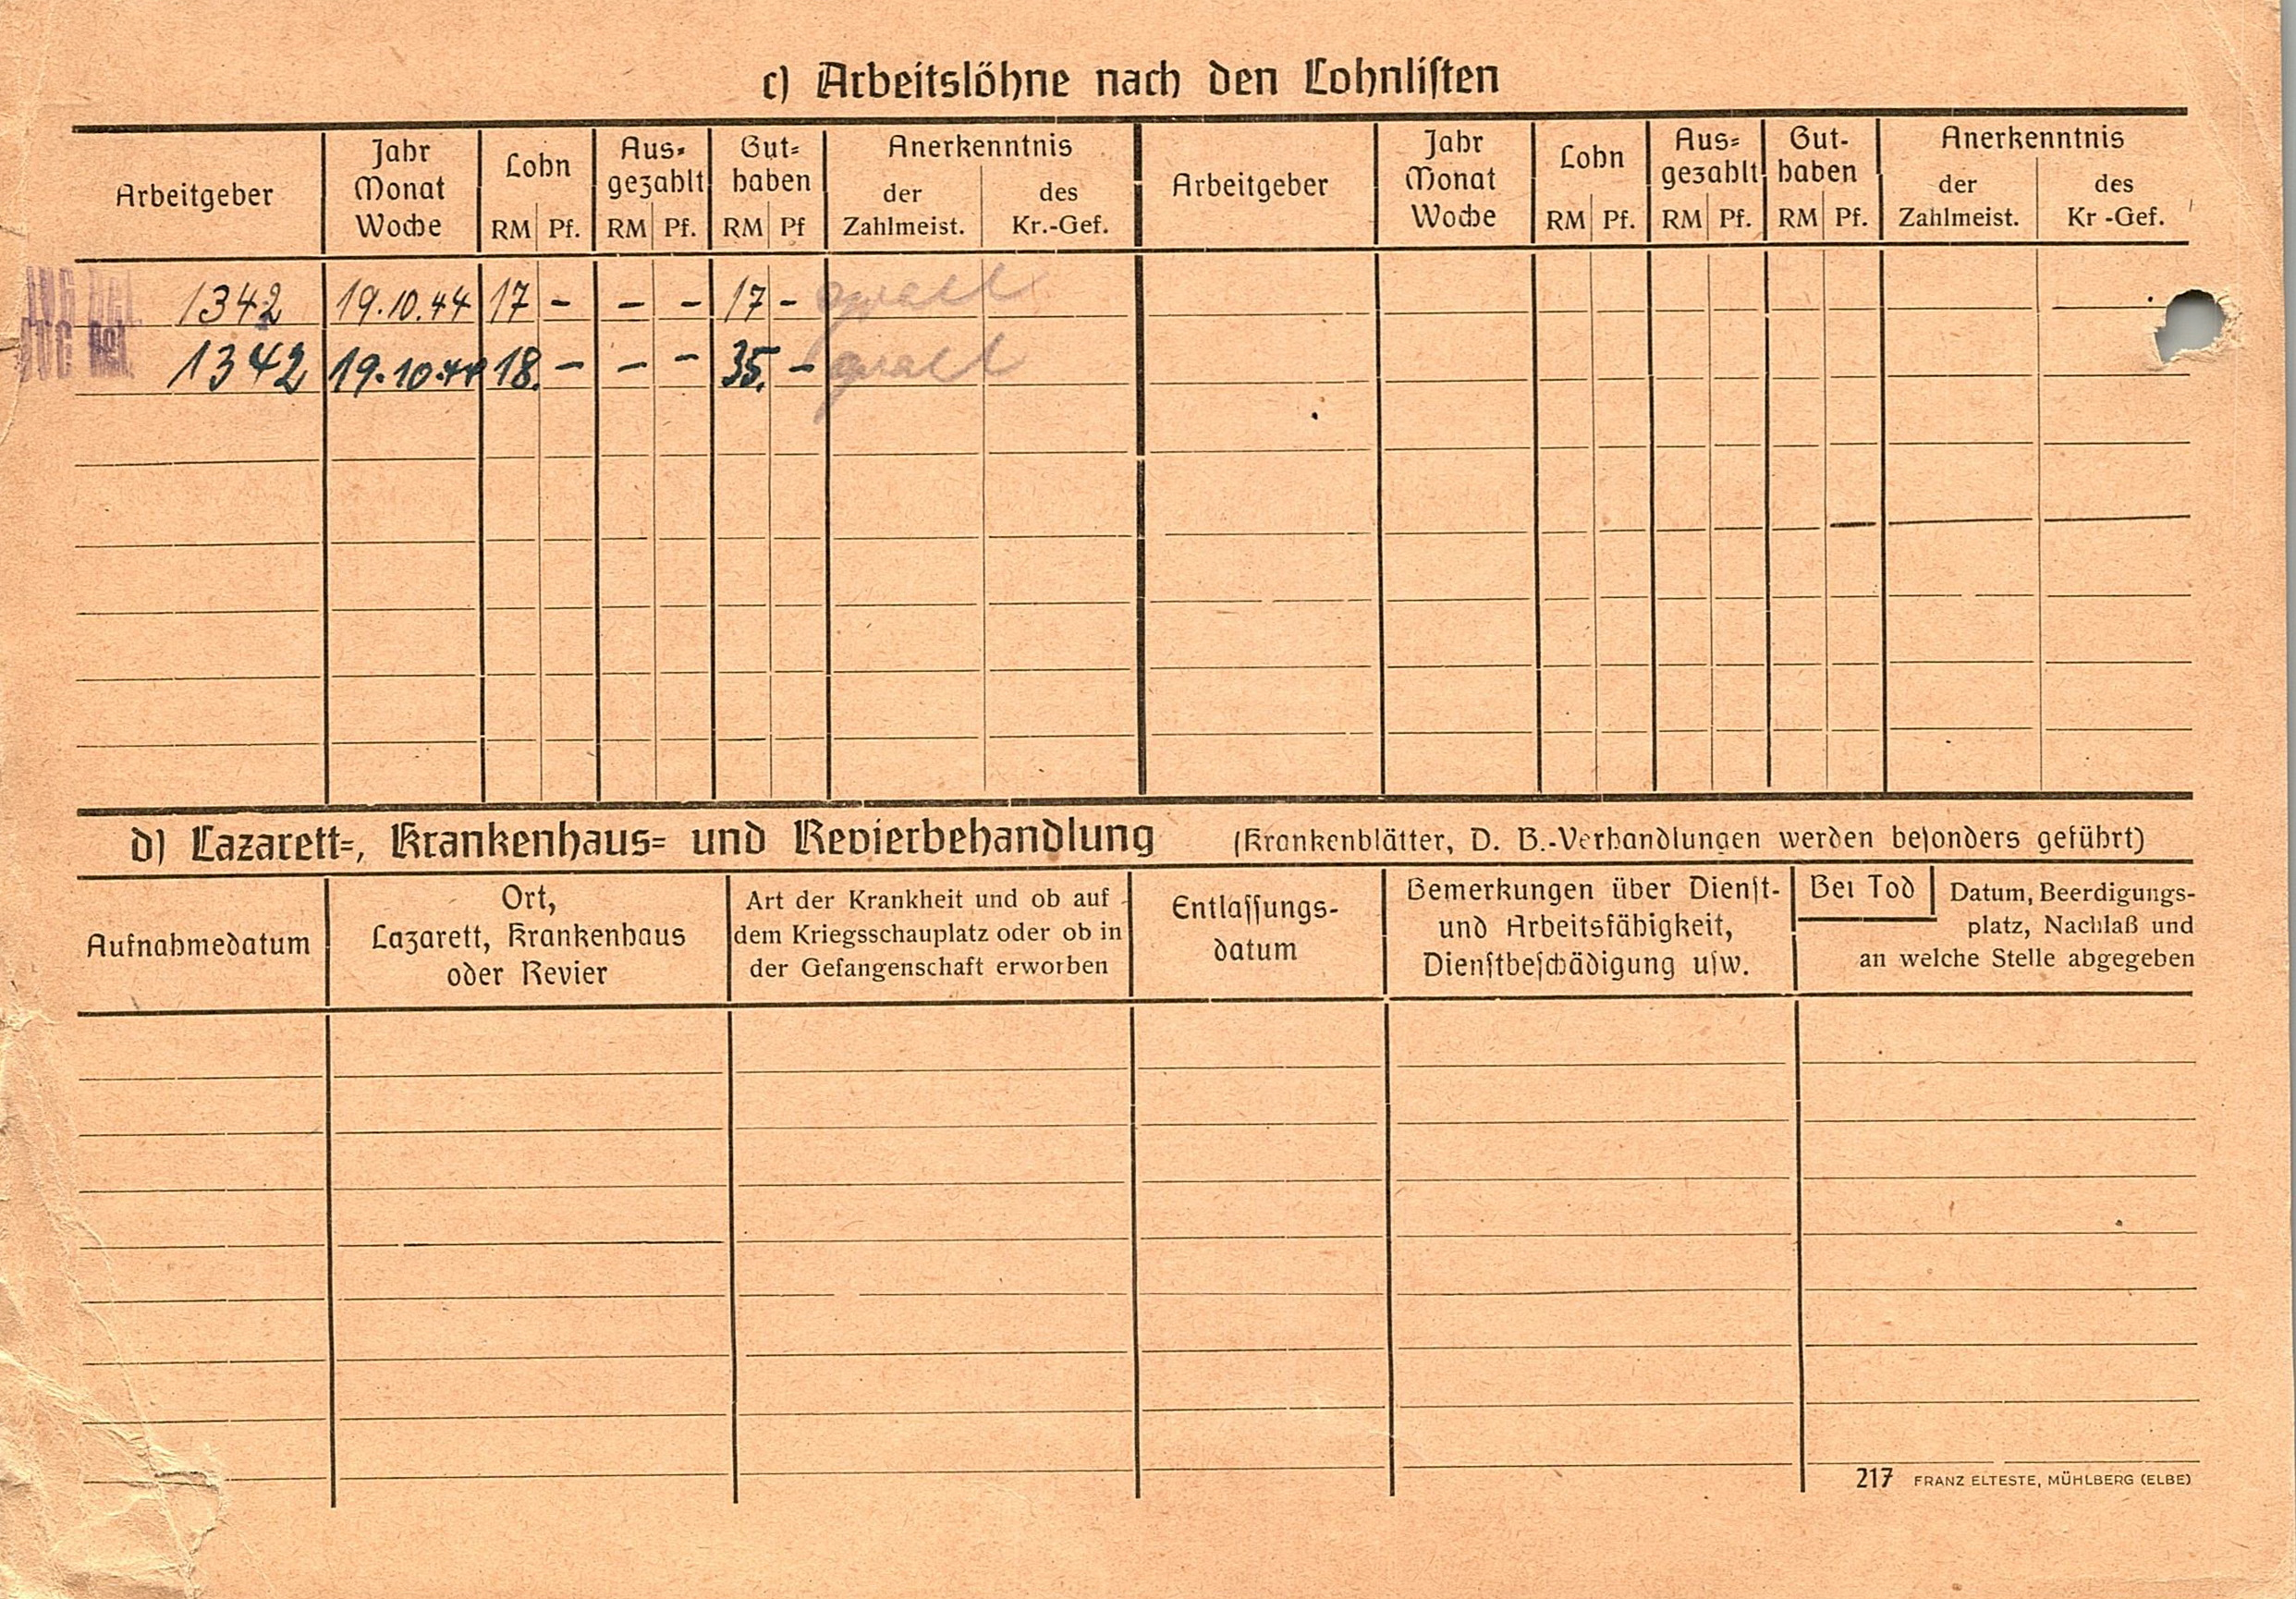 c) Arbeitslöhne nach den Lohnlisten
Arbeitgeber
Jahr
Monat
Woche
Lohn
RM Pf.
Aus-
gezahlt
RM Pf.
Gut-
haben
RM Pf
Anerkenntnis
der
Zahlmeist.
des
Kr.-Gef.
Arbeitgeber
Jahr
Monat
Woche
Lohn
RM Pf.
Aus-
gezahlt
RM Pf.
Gut-
haben
RM Pf.
Anerkenntnis
der
Zahlmeist.
des
Kr -Gef.
1342 19.10.44 17 - - - 17 -
1342 19.10.44 18. - - - 35. -
d) Lazarett-, Krankenhaus- und Revierbehandlung (Krankenblätter, D. B.-Verhandlungen werden besonders geführt)
Aufnahmedatum
Ort,
Lazarett, Krankenhaus
oder Revier
Art der Krankheit und ob auf
dem Kriegsschauplatz oder ob in
der Gefangenschaft erworben
Entlassungs-
datum
Bemerkungen über Dienst-
und Arbeitsfähigkeit,
Dienstbeschädigung usw.
Bei Tod
Datum, Beerdigungs-
platz, Nachlaß und
an welche Stelle abgegeben
217 FRANZ ELTESTE, MÜHLBERG (ELBE)